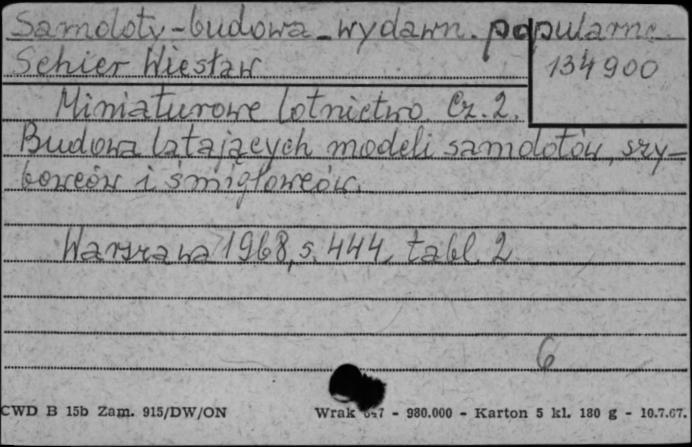 Samoloty - budowa - wydawn. popularne.
Schier Wiesław
134900
Miniaturowe lotnictwo. Cz. 2.
Budowa latających modeli samolotów, szy-
bowców i śmigłowców.
Warszawa 1968, s. 444, tabl. 2
6
CWD B 15b Zam. 915/DW/ON Wrak 647 - 980.000 - Karton 5 kl. 180 g - 10.7.67.